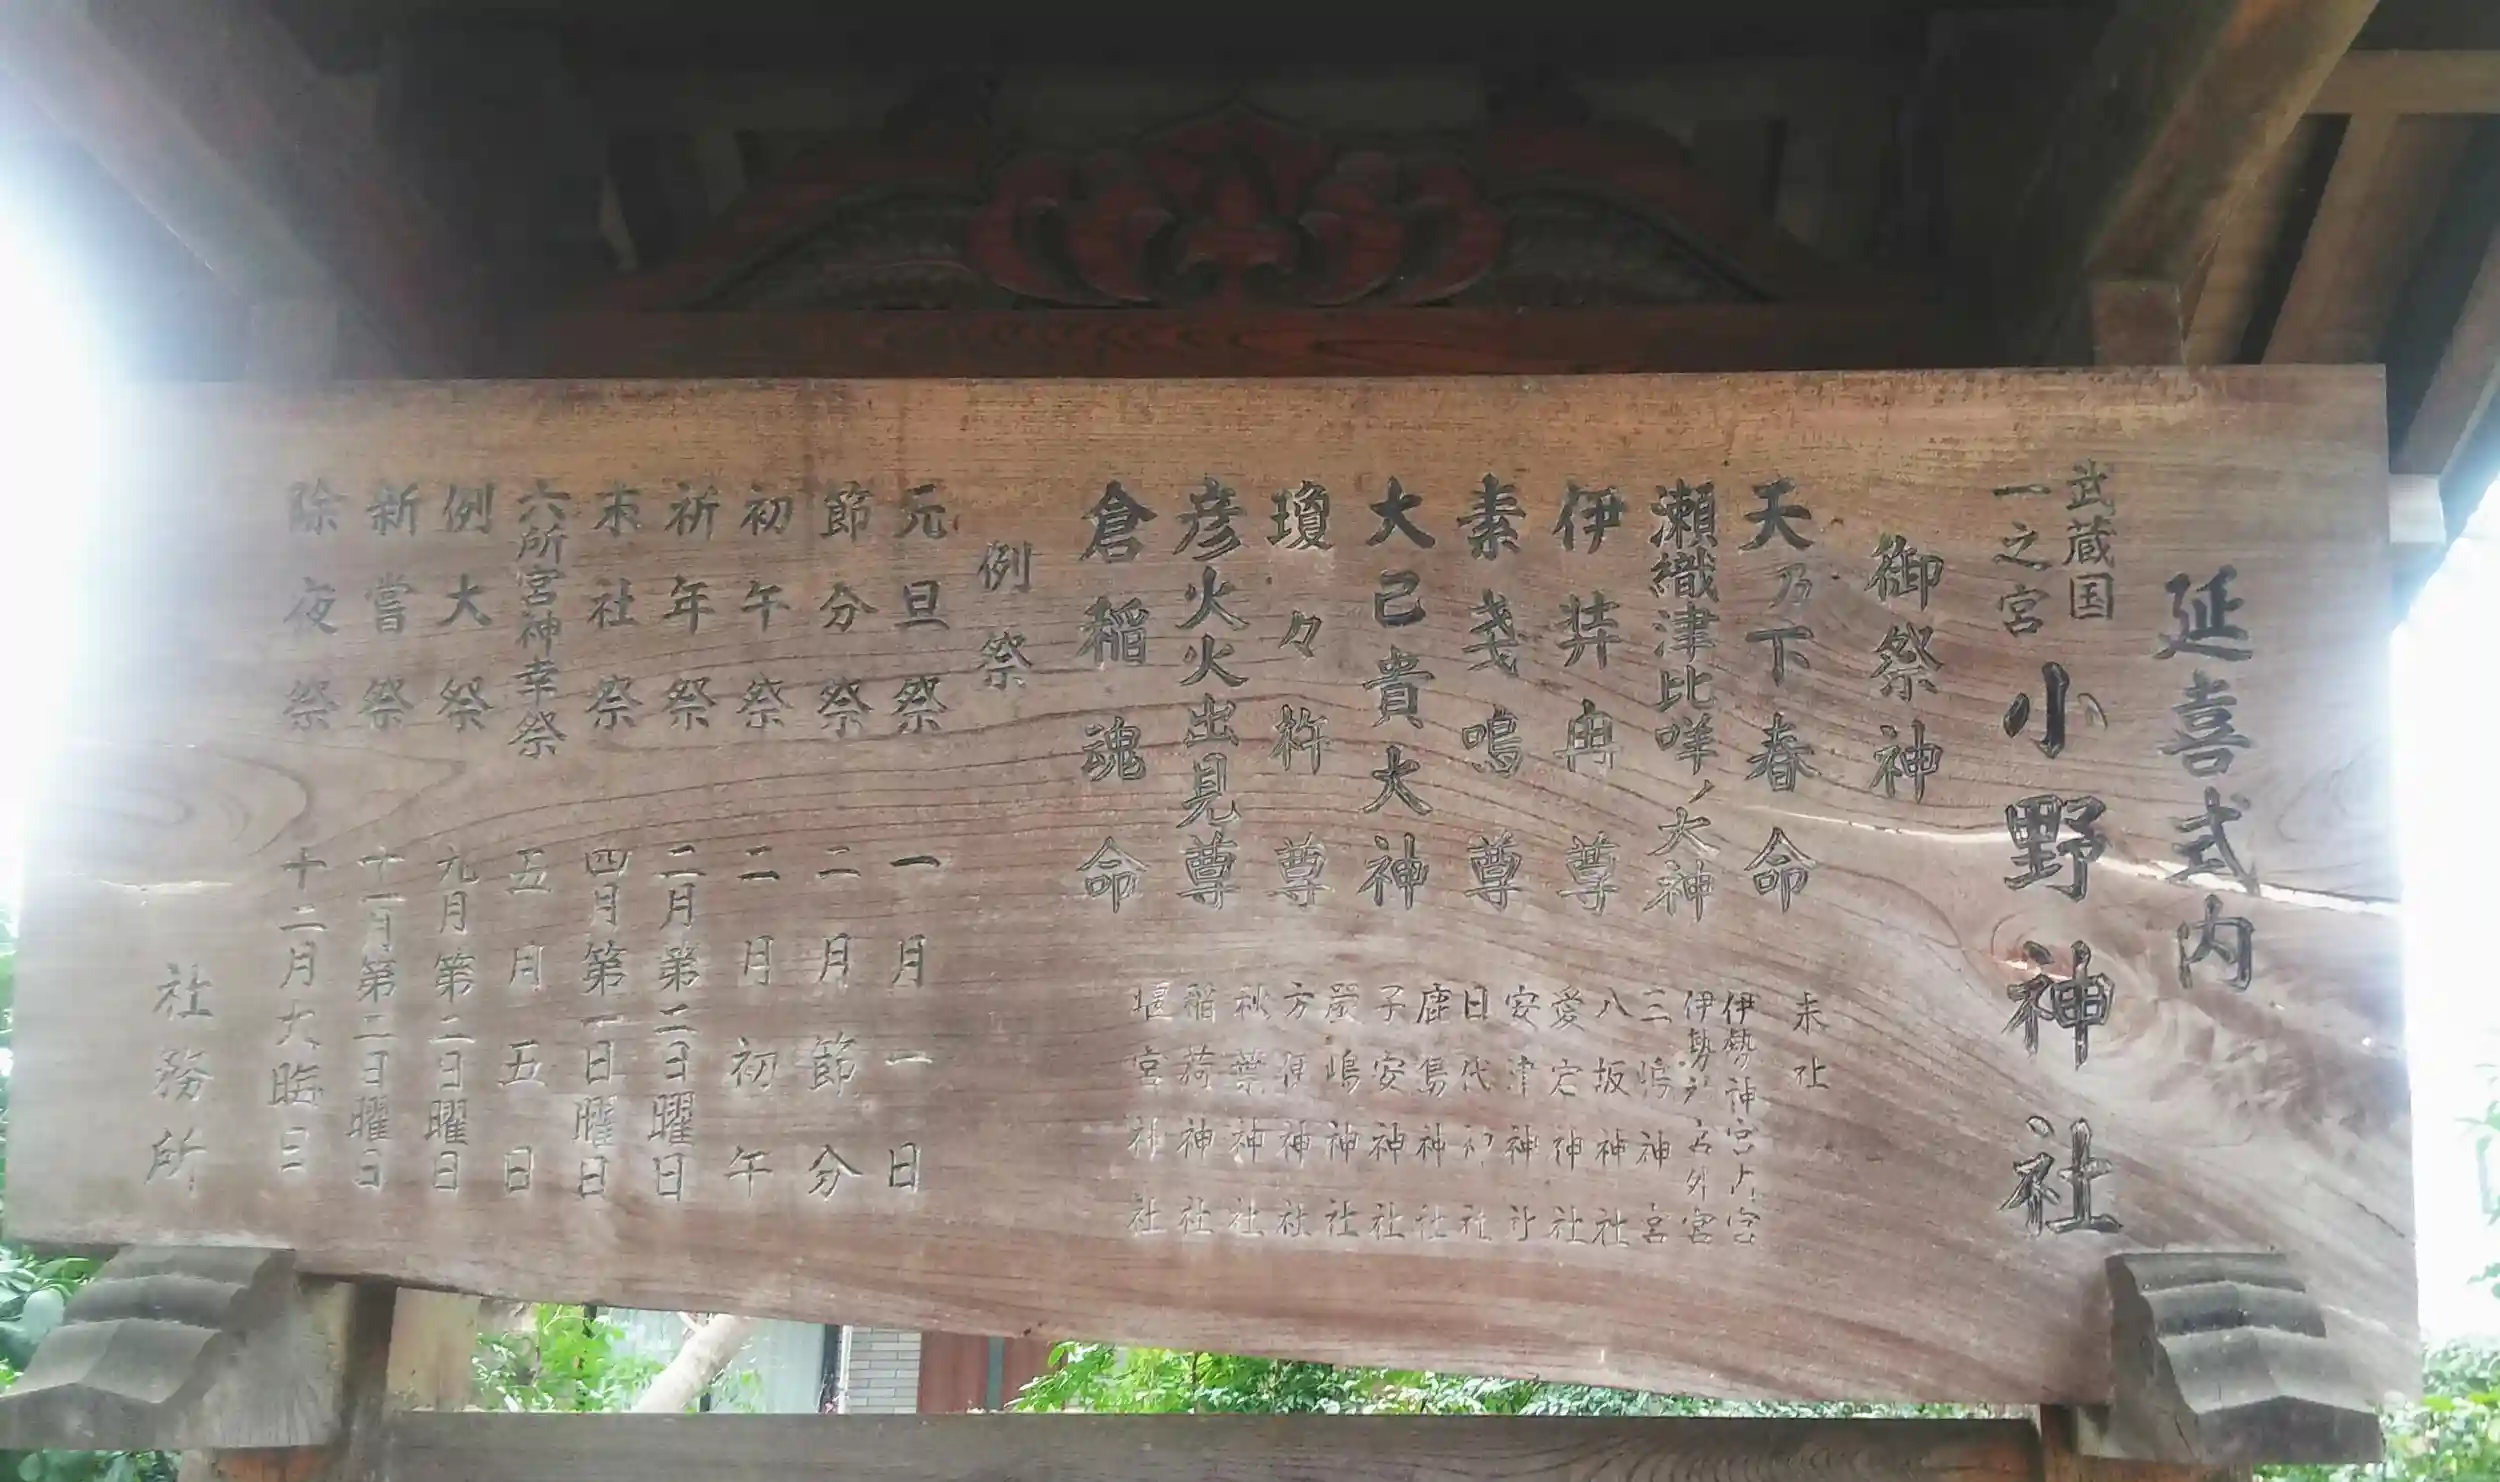 延喜式内
武蔵国
一之宮
小野神社
御祭神
天乃下春命
瀬織津比咩ノ大神
伊弉冉尊
素戔鳴尊
大己貴大神
瓊々杵尊
彦火火出見尊
倉稲魂命
末社
伊勢神宮内宮
伊勢神宮外宮
三嶋神宮
八坂神社
愛宕神社
安津神社
日代神社
鹿島神社
子安神社
嚴嶋神社
方便神社
秋葉神社
稲荷神社
堰宮神社
例祭
元旦祭 一月一日
節分祭 二月節分
初午祭 二月初午
祈年祭 二月第二日曜日
末社祭 四月第一日曜日
六所宮神幸祭 五月五日
例大祭 九月第二日曜日
新嘗祭 十一月第二日曜日
除夜祭 十二月大晦日
社務所